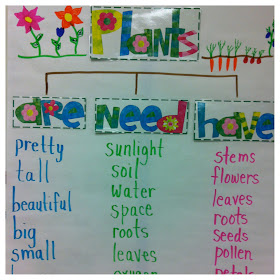 Plants
are
need
have
pretty
tall
beautiful
big
small
sunlight
soil
water
space
roots
leaves
oxygen
stems
flowers
leaves
roots
seeds
pollen
petals